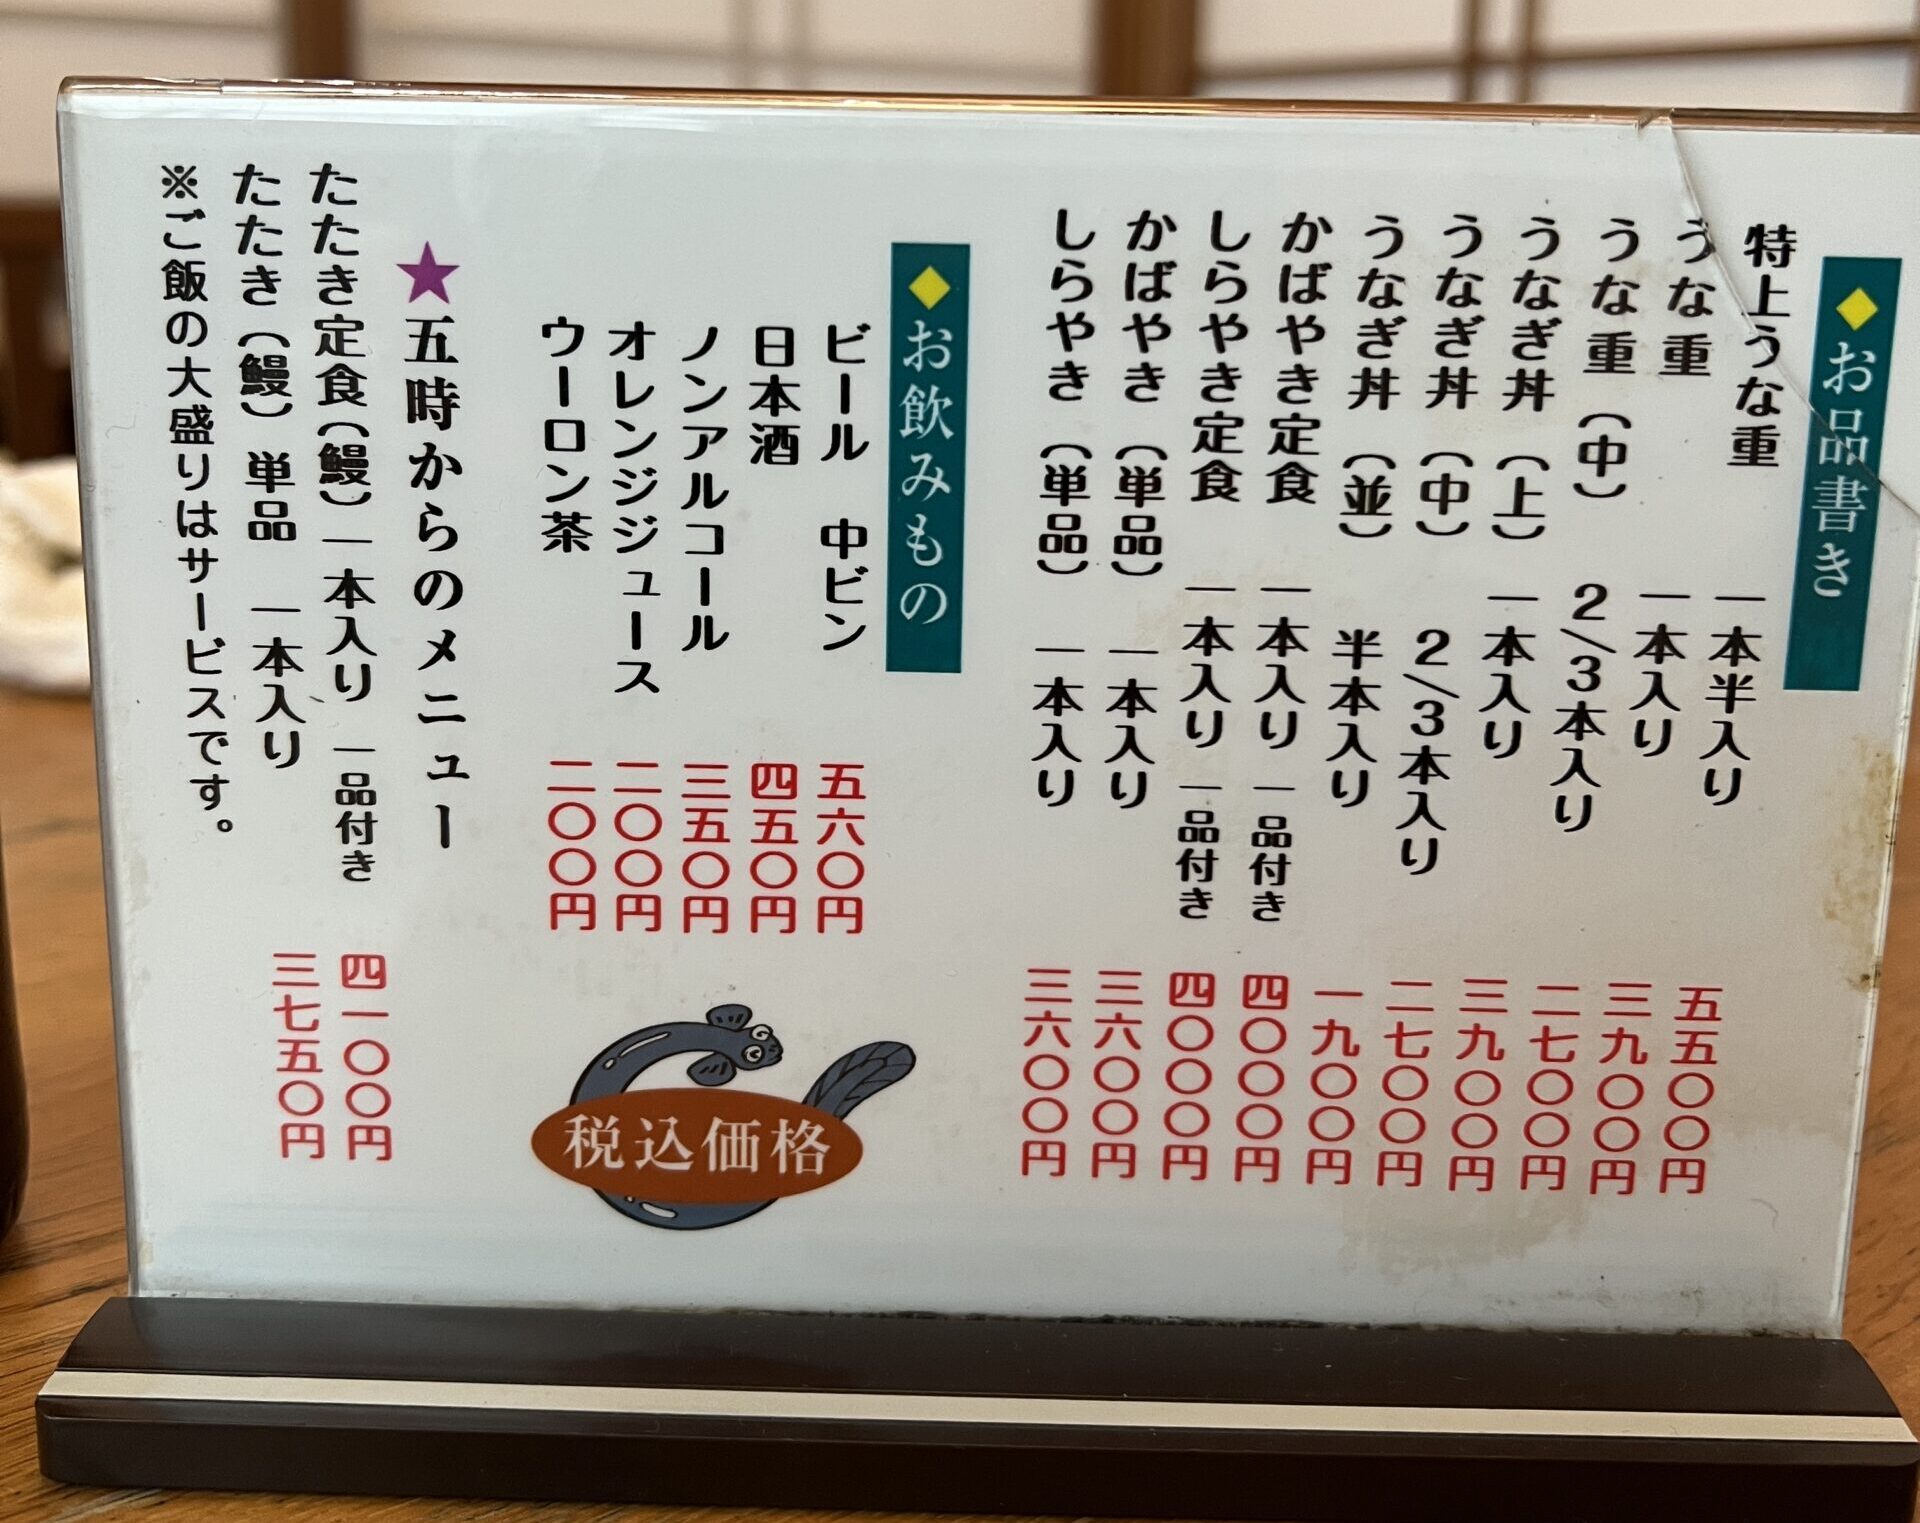 ◆お品書き
特上うな重 一本半入り 五五〇〇円
うな重 一本入り 三九〇〇円
うな重(中) 2/3本入り 二七〇〇円
うなぎ丼(上) 一本入り 三九〇〇円
うなぎ丼(中) 2/3本入り 二七〇〇円
うなぎ丼(並) 半本入り 一九〇〇円
かばやき定食 一本入り 一品付き 四〇〇〇円
しらやき定食 一本入り 一品付き 四〇〇〇円
かばやき(単品) 一本入り 三六〇〇円
しらやき(単品) 一本入り 三六〇〇円
◆お飲みもの
ビール 中ビン 五六〇円
日本酒 四五〇円
ノンアルコール 三五〇円
オレンジジュース 二〇〇円
ウーロン茶 二〇〇円
税込価格
★五時からのメニュー
たたき定食(鰻) 一本入り 一品付き 四一〇〇円
たたき(鰻) 単品 一本入り 三七五〇円
※ご飯の大盛りはサービスです。